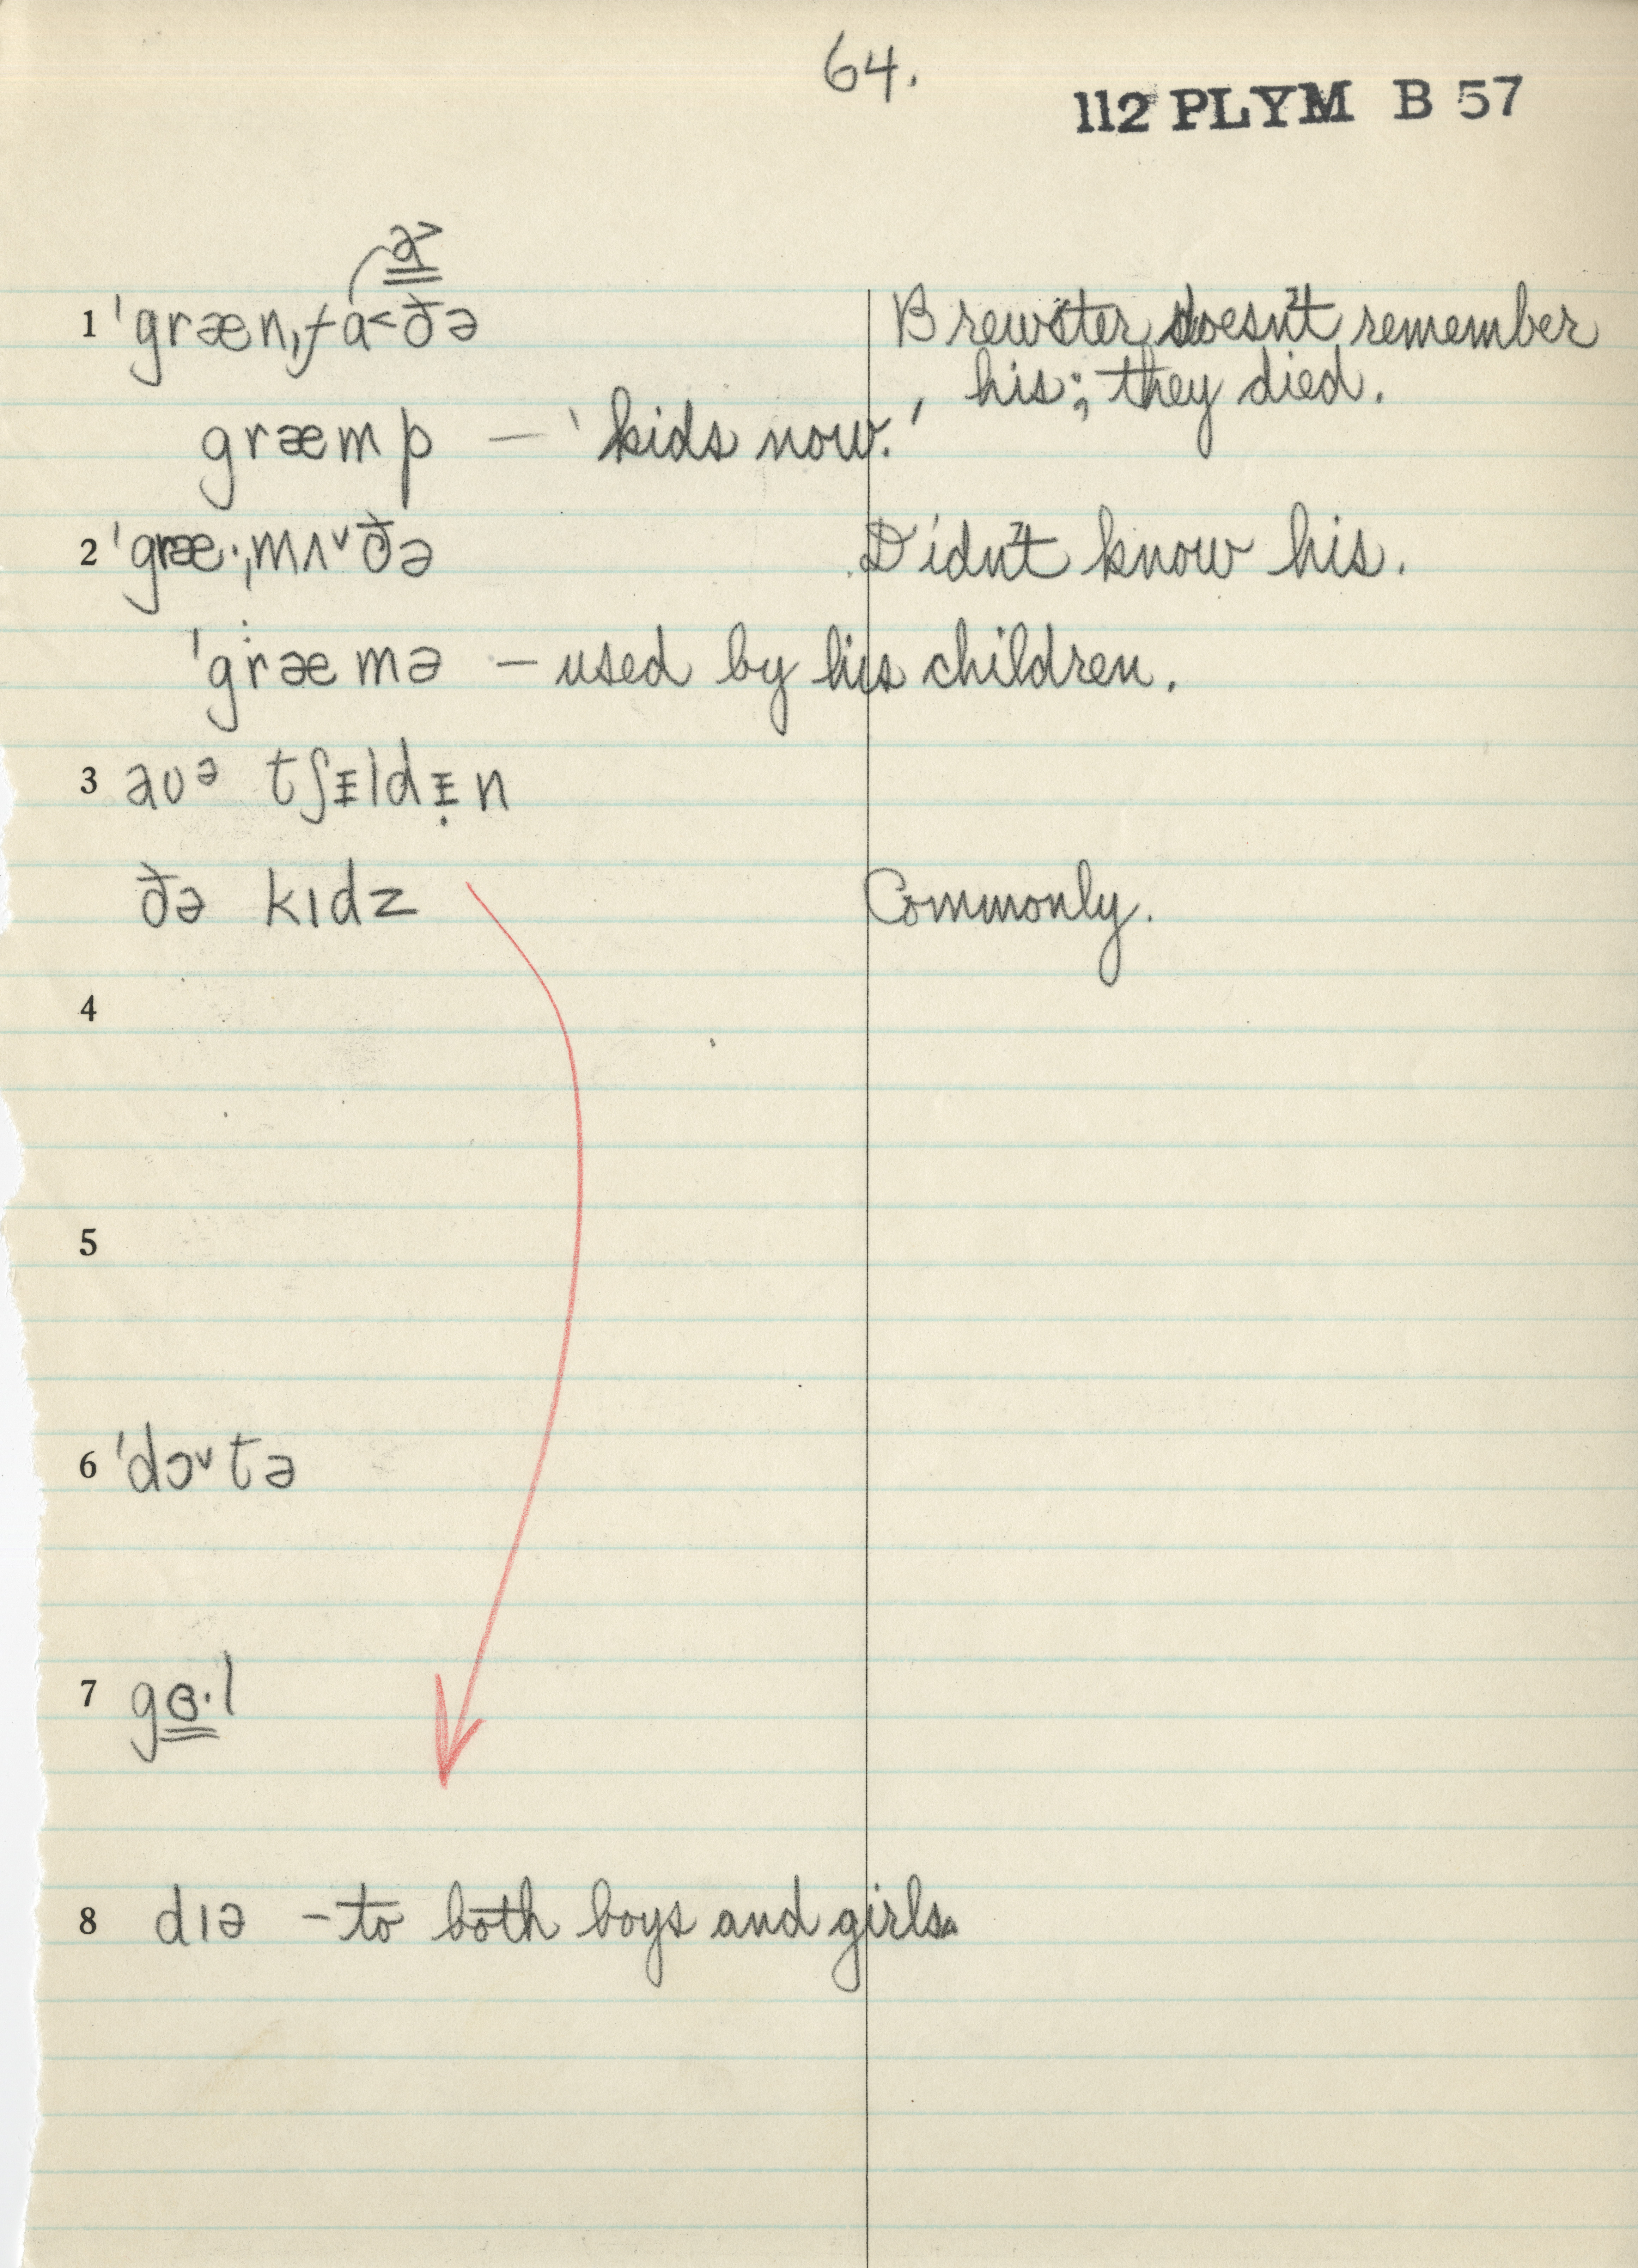 64.
112 PLYM B 57
a˃
1 ˈgrænˌfa˂ðə Brewster doesn't remember
his; they died.
græmp — 'kids now.'
2 ˈgræ·ˌmʌ˅ðə Didn't know his.
ˈgræmə — used by his children.
3 aʊᵊ tʃᵻldᵻ̣n
ðə kɪdz Commonly.
4
5
6 ˈdɔ˅tə
7 gɞ·l
8 dɪə – to both boys and girls.